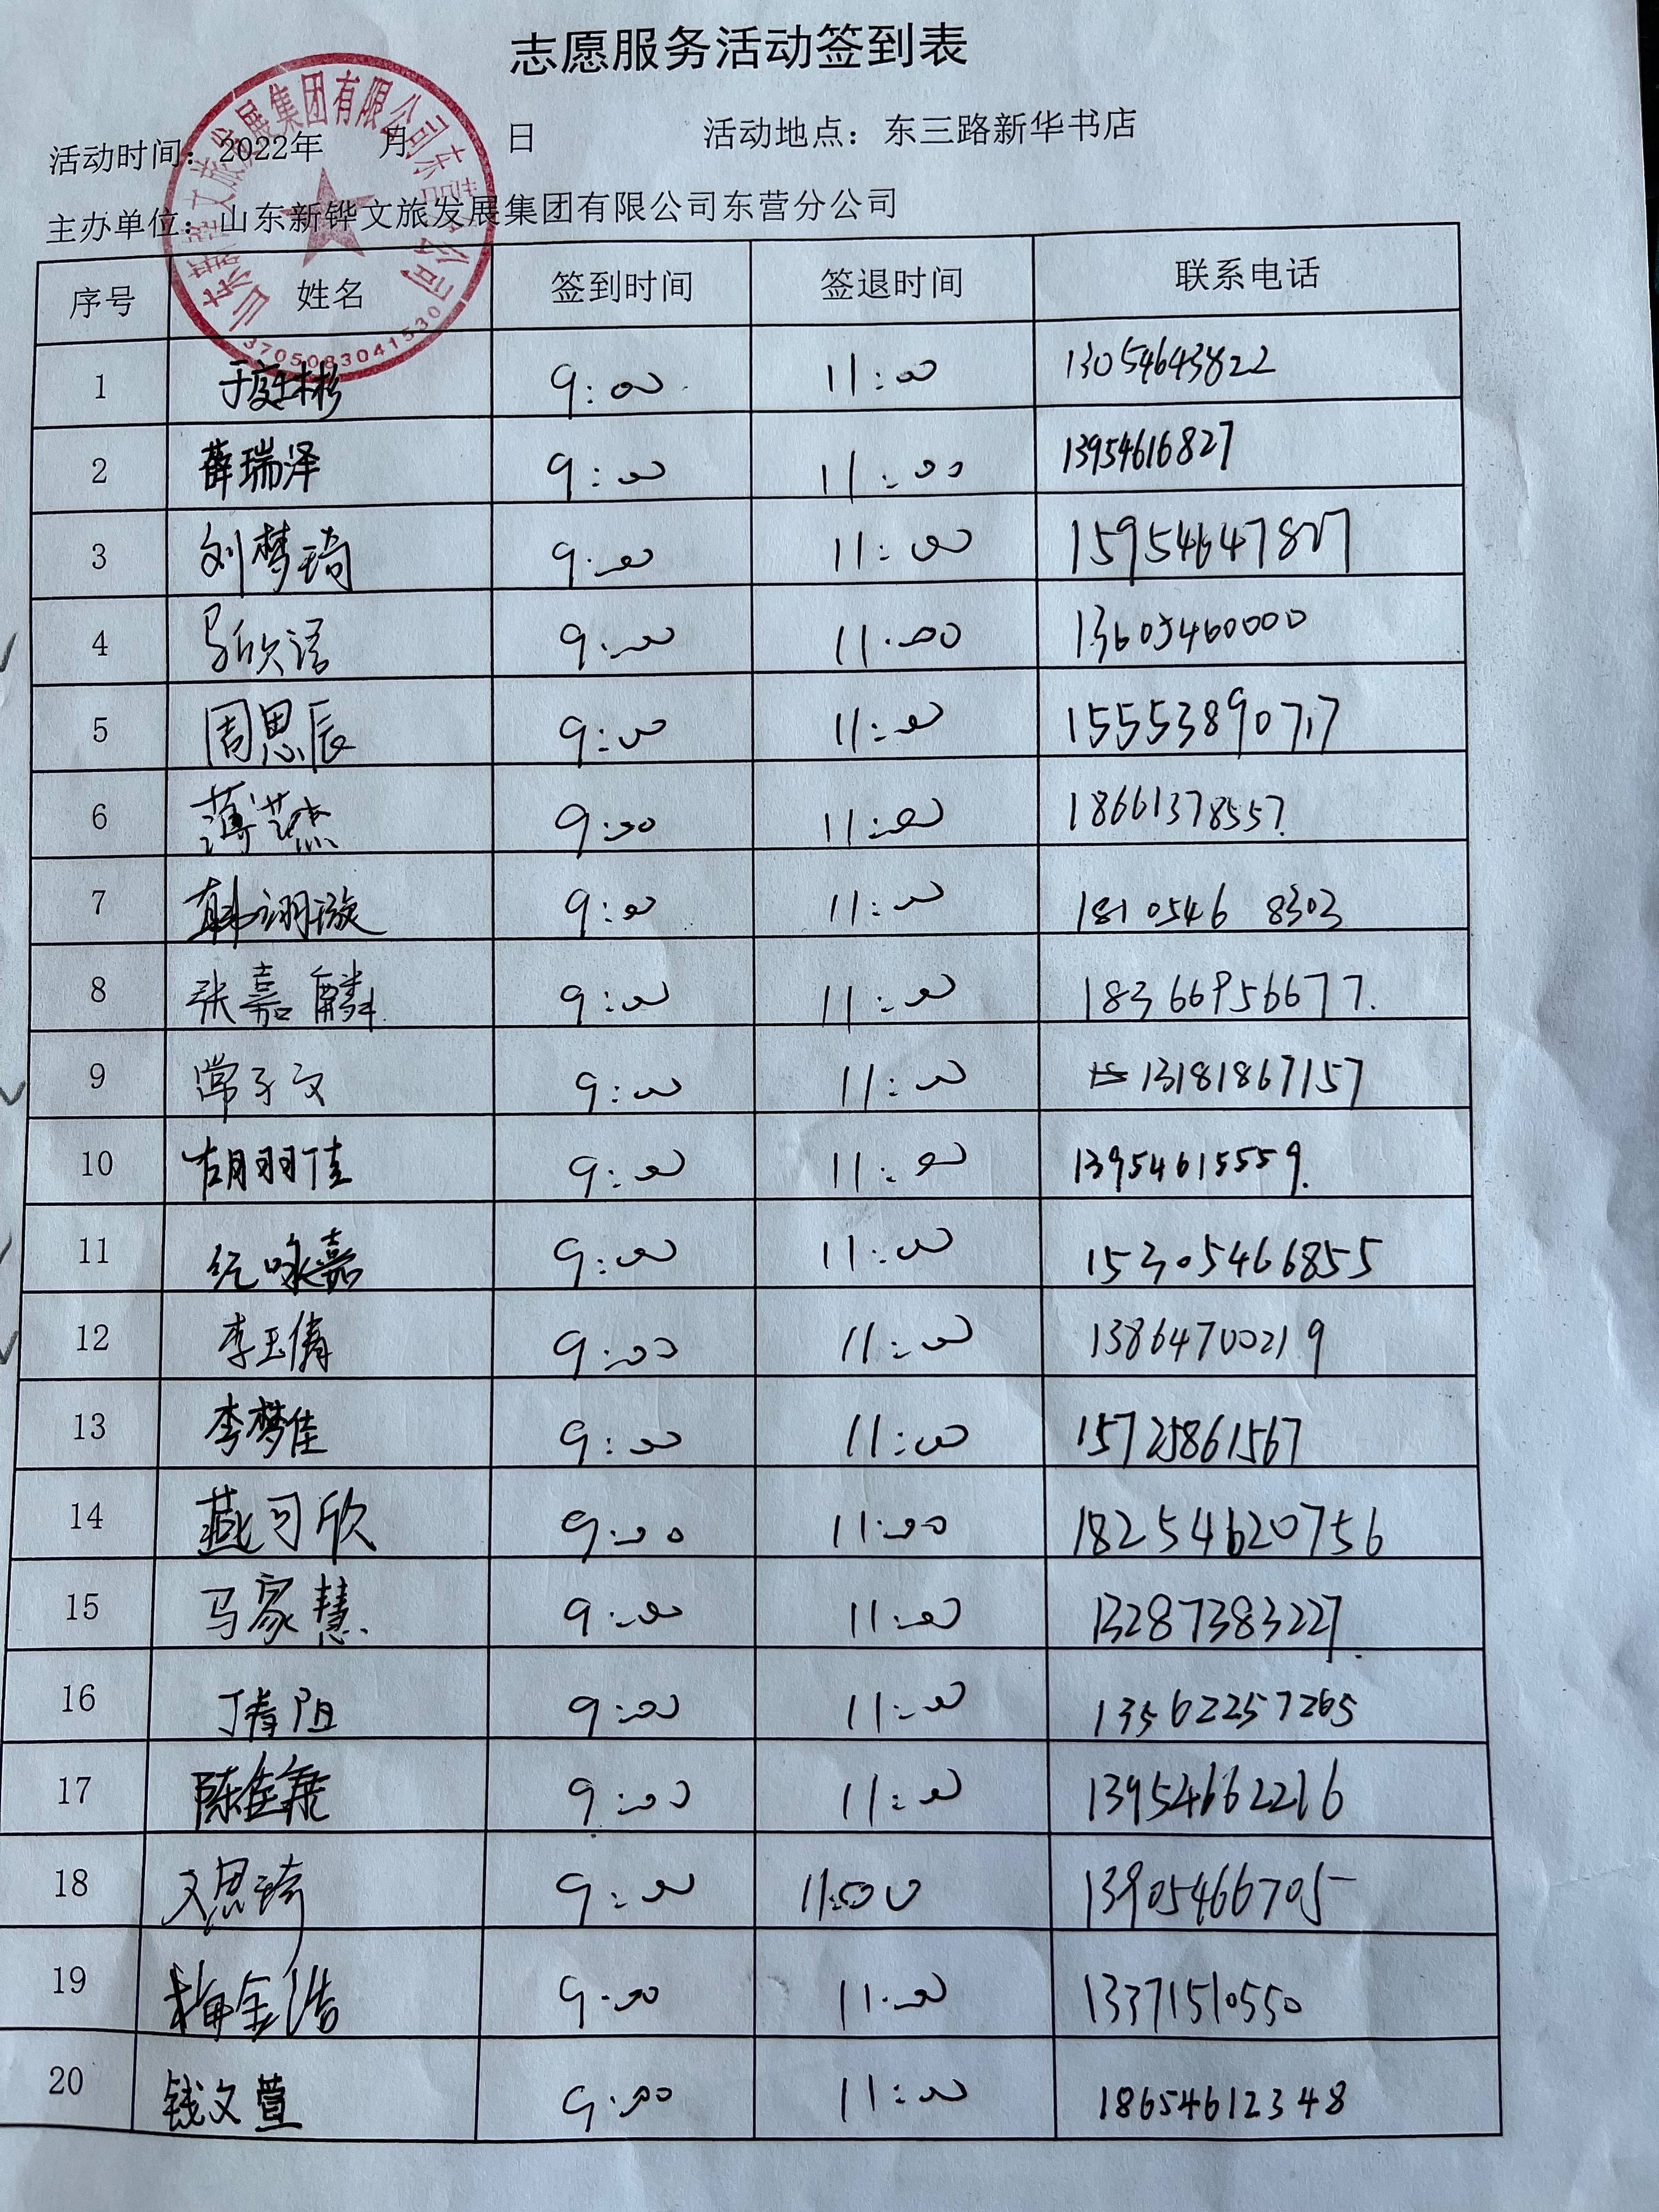 志愿服务活动签到表
活动时间：2022年 月 日 活动地点：东三路新华书店
主办单位：山东新铧文旅发展集团有限公司东营分公司
山东新铧文旅发展集团有限公司东营分公司
3705083041530
序号 姓名 签到时间 签退时间 联系电话
1 于庭彬 9:00 11:00 13054643822
2 薛瑞泽 9:00 11:00 13954616827
3 刘梦琦 9:00 11:00 15954647827
4 马欣语 9:00 11:00 13605460000
5 周思辰 9:00 11:00 15553890717
6 薄 9:00 11:00 18661378557
7 韩翊漩 9:00 11:00 1810546 8303
8 张嘉麟 9:00 11:00 18366956677
9 常子文 9:00 11:00 13181867157
10 胡羽佳 9:00 11:00 13954615559
11 纪咏嘉 9:00 11:00 15305466855
12 李玉倩 9:00 11:00 13864700219
13 李梦佳 9:00 11:00 15725861567
14 燕可欣 9:00 11:00 18254620756
15 马家慧 9:00 11:00 13287383227
16 9:00 11:00 13562257265
17 陈佳 9:00 11:00 13954662216
18 文思琦 9:00 11:00 13905466705
19 梅金浩 9:00 11:00 13371510550
20 钱文萱 9:00 11:00 18654612348